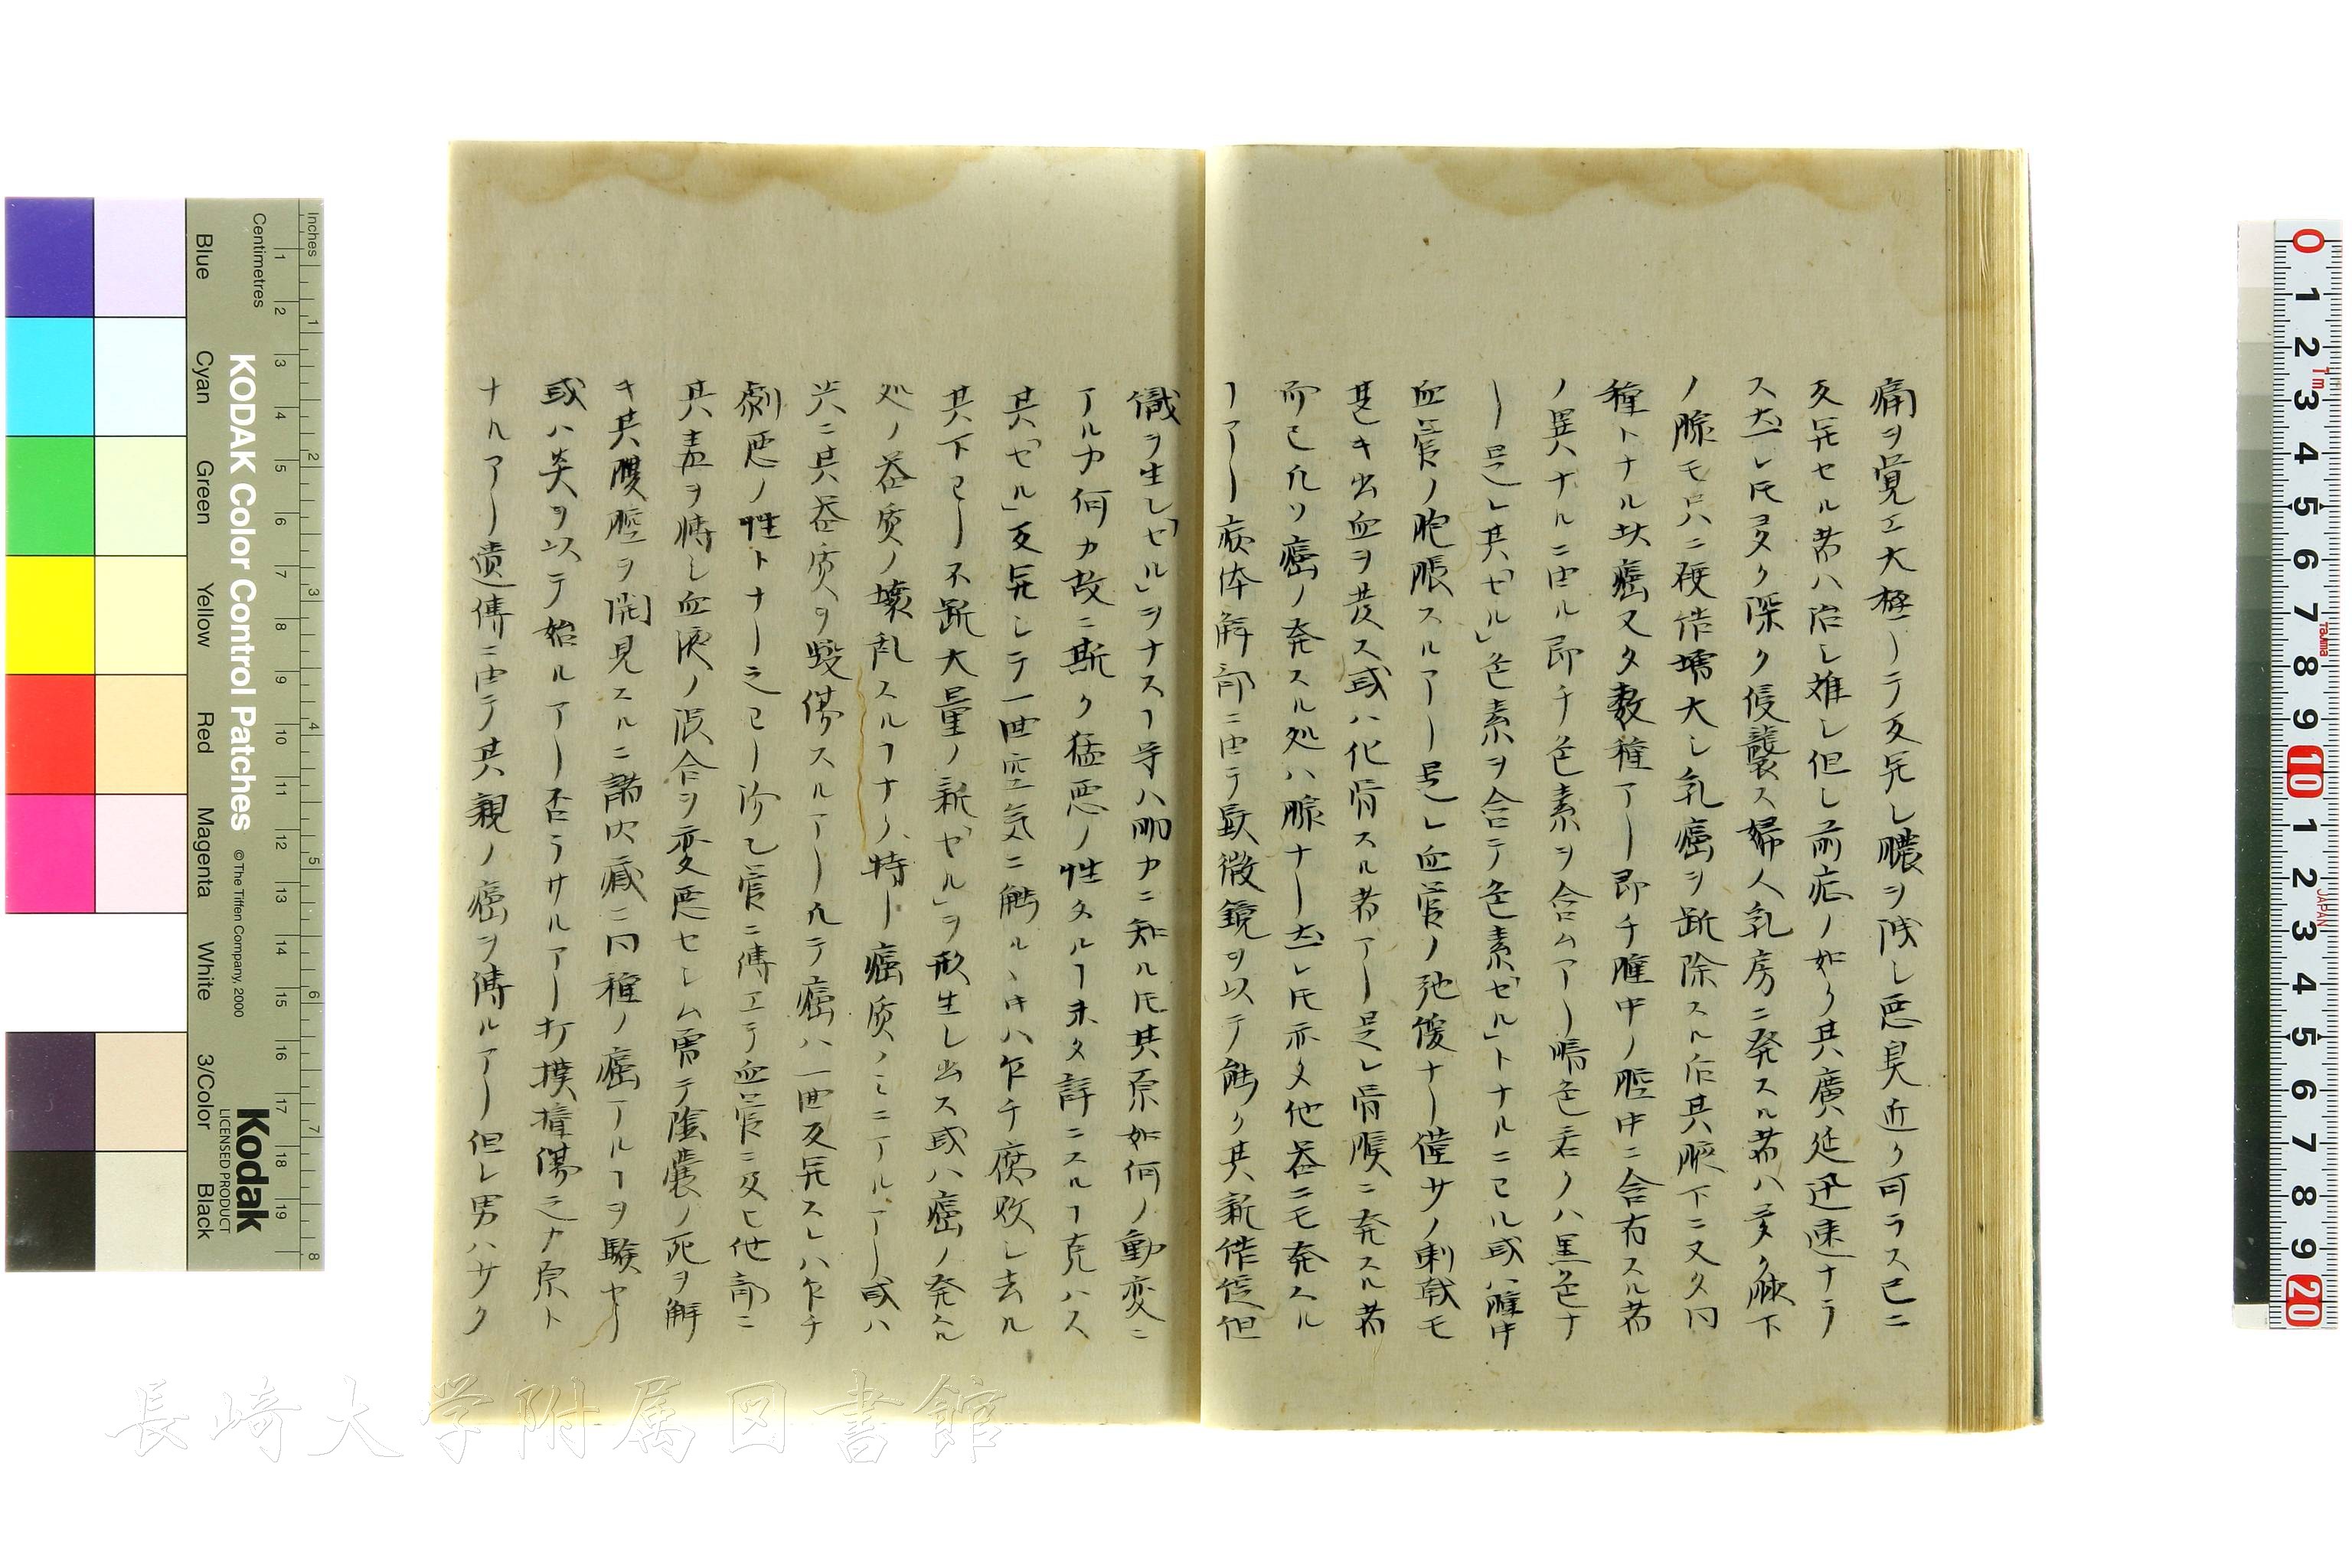 痛ヲ覚エ大極ーテ破レ膿ヲ洩シ悪臭近ク可ラス已ニ
セル者ハ治シ難シ但シ前症ノ如ク其廣延迅速ナラ
ス然レ𪜈多ク深ク侵襲ス婦人乳房ニ発スル者ハ多ク腋下
ノ腺モ共ニ硬結増大シ乳癌ヲ断除スル后其腋下ニ又タ同
種トナル 癌又タ数種アリ即チ腫中ノ腔中ニ含有スル者
ノ異ナルニ由ル即チ色素ヲ含ムアリ暗色若クハ黒色ナ
リ是レ其「セル」色素ヲ含テ色素「セル」トナルニヨル或ハ腫中
血管ノ胞脹スルアリ是レ血管ノ弛緩ナリ僅少ノ刺戟モ
甚キ出血ヲ発ス或ハ化骨スル者アリ是レ骨膜ニ発スル者
而已凡ソ癌ノ発スル処ハ腺ナリ然レ𪜈亦タ他器ニモ発スル
ヿアリ病体解剖ニ由テ顕微鏡ヲ以テ能ク其新 但
織ヲ生シ「セル」ヲナスヿ等ハ明カニ知ル𪜈其原如何ノ動変ニ
アルカ何カ故ニ斯ク猛悪ノ性タルヿ未タ詳ニスルヿ克ハス
其「セル」 シテ一回空気ニ触ルヽ𪜈ハ乍チ腐敗シ去ル
其下ヨリ不断大量ノ新「セル」ヲ形生シ出ス或ハ癌ノ発スル
処ノ器質ノ壊乱スルヿナク特リ癌質ノミニアルアリ或ハ
共ニ其器質ヲ毀傷スルアリ凡テ癌ハ一回 スレハ乍チ
劇悪ノ性トナリ之ヨリ 管ニ傳エテ血管ニ及ヒ他部ニ
其毒ヲ傳シ血液ノ混合ヲ変悪セシム曽テ陰嚢ノ死ヲ解
キ其腹腔ヲ開見スルニ諸内臓ニ同種ノ癌アルヿヲ験セリ
或ハ炎ヲ以テ始ルアリ否ラサルアリ打撲撞傷之カ原ト
ナルアリ遺傳ニ由テ其親ノ癌ヲ傳ルアリ但シ男ハサク
Inches
Centimetres
KODAK Color Control Patches
© The Tiffen Company, 2000
Kodak
LICENSED PRODUCT
Blue
Cyan
Green
Yellow
Red
Magenta
White
3/Color
Black
長崎大学附属図書館